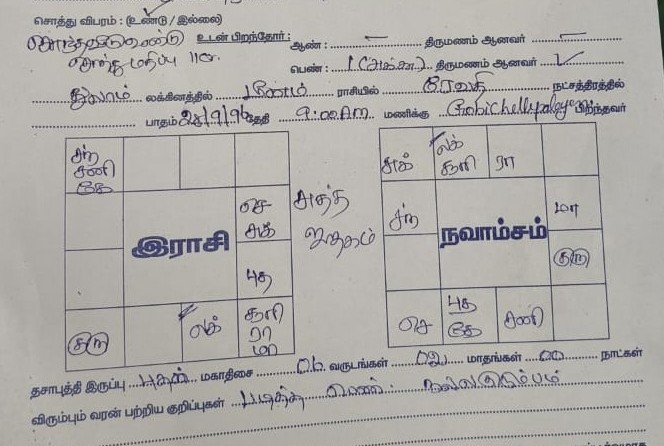 சொத்து விபரம் : (உண்டு / இல்லை)
சொந்தவீடு உண்டு உடன் பிறந்தோர் : ஆண் : – திருமணம் ஆனவர் –
சொந்த மதிப்பு பெண் : 1 (அக்கா) திருமணம் ஆனவர் ✓
துலாம் லக்கினத்தில் மீனம் ராசியில் ரேவதி நட்சத்திரத்தில்
பாதம் 28/9/96 தேதி 9:00 AM மணிக்கு Gobichettypalayam பிறந்தவர்
சந் சனி கே
செ சுக்
புத
குரு
லக்
சூரி ரா மா
இராசி
சுத்த ஜாதகம்
சுக்
லக் சூரி
ரா
சந்
மா
குரு
செ
புத கே
சனி
நவாம்சம்
தசாபுத்தி இருப்பு புதன் மகாதிசை 06 வருடங்கள் மாதங்கள் 00 நாட்கள்
விரும்பும் வரன் பற்றிய குறிப்புகள் படித்த பெண். நல்லகுடும்பம்